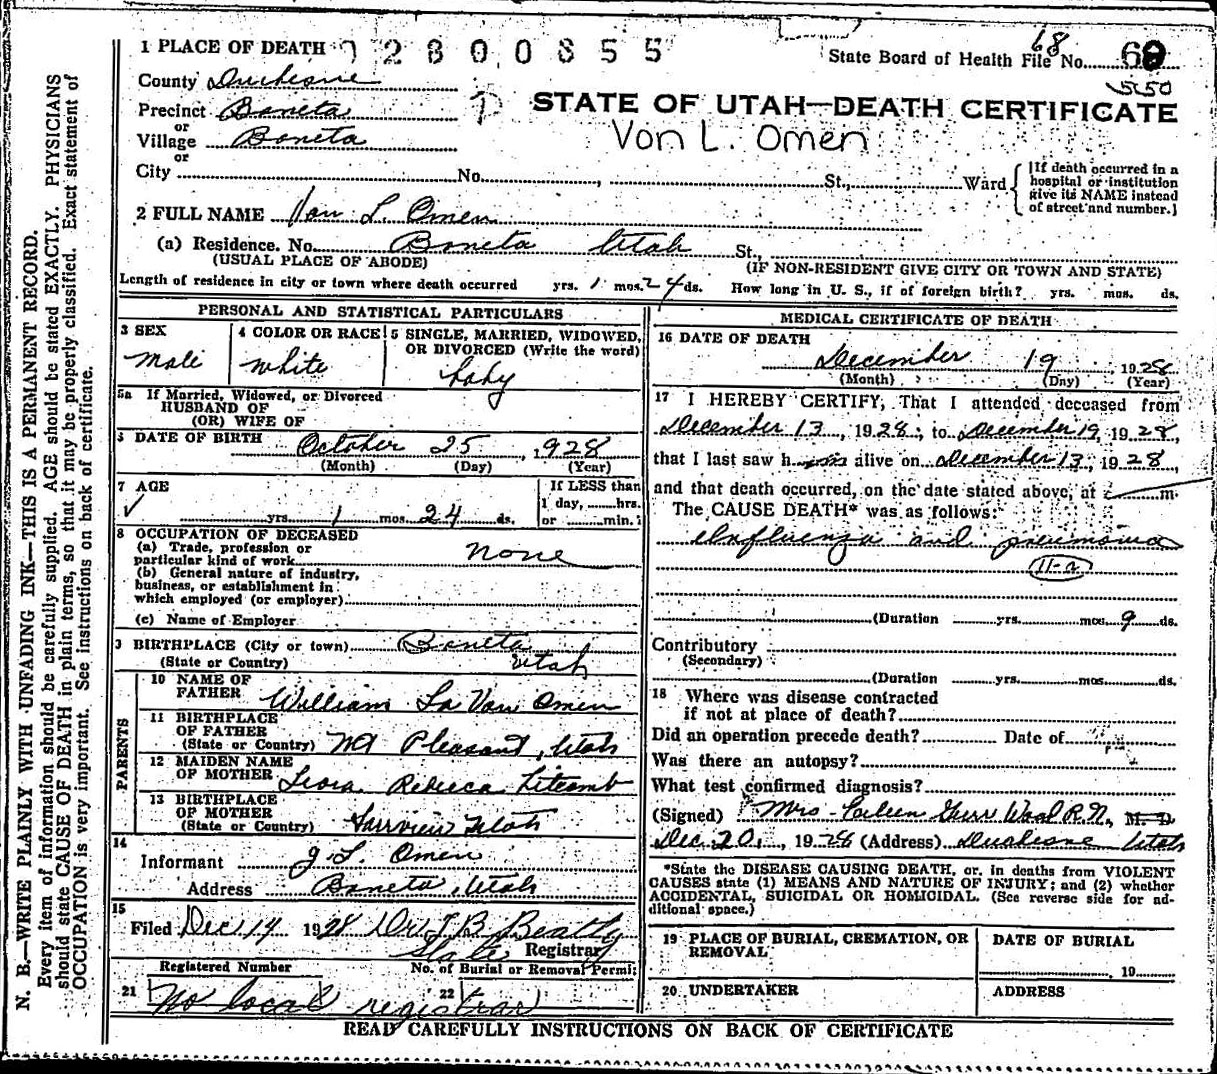 1 PLACE OF DEATH 2800855
State Board of Health File No. 68 69
5150
County Duchesne
Precinct Boneta
or
Village Boneta
or
City No. , St., Ward
STATE OF UTAH—DEATH CERTIFICATE
Von L. Omen
[If death occurred in a
hospital or institution
give its NAME instead
of street and number.]
2 FULL NAME Van L. Omen
(a) Residence. No. Boneta Utah St.,
(USUAL PLACE OF ABODE) (IF NON-RESIDENT GIVE CITY OR TOWN AND STATE)
Length of residence in city or town where death occurred yrs. 1 mos. 24 ds. How long in U. S., if of foreign birth? yrs. mos. ds.
PERSONAL AND STATISTICAL PARTICULARS
3 SEX
male
4 COLOR OR RACE
white
5 SINGLE, MARRIED, WIDOWED,
OR DIVORCED (Write the word)
baby
5a If Married, Widowed, or Divorced
HUSBAND OF
(OR) WIFE OF
6 DATE OF BIRTH October 25, 1928
(Month) (Day) (Year)
7 AGE
yrs. 1 mos. 24 ds.
If LESS than
1 day, hrs.
or min.
8 OCCUPATION OF DECEASED
(a) Trade, profession or
particular kind of work none
(b) General nature of industry,
business, or establishment in
which employed (or employer)
(c) Name of Employer
9 BIRTHPLACE (City or town) Boneta
(State or Country) Utah
PARENTS
10 NAME OF
FATHER William La Van Omen
11 BIRTHPLACE
OF FATHER
(State or Country) Mt Pleasant, Utah
12 MAIDEN NAME
OF MOTHER Leora Rebecca Titcomb
13 BIRTHPLACE
OF MOTHER
(State or Country) Fairview Utah
14
Informant J. L. Omen
Address Boneta, Utah
15
Filed Dec 19 1928 Dr J B Beatty
State Registrar
Registered Number No. of Burial or Removal Permit
21 No local registrar 22
MEDICAL CERTIFICATE OF DEATH
16 DATE OF DEATH
December 19, 1928
(Month) (Day) (Year)
17 I HEREBY CERTIFY, That I attended deceased from
December 13, 1928, to December 19, 1928,
that I last saw him alive on December 13, 1928,
and that death occurred, on the date stated above, at m.
The CAUSE DEATH* was as follows:
Influenza and pneumonia
11-a
(Duration yrs. mos. 9 ds.
Contributory
(Secondary)
(Duration yrs. mos. ds.
18 Where was disease contracted
if not at place of death?
Did an operation precede death? Date of
Was there an autopsy?
What test confirmed diagnosis?
(Signed) Mrs R.N., M. D.
Dec. 20, 1928 (Address) Duchesne Utah
*State the DISEASE CAUSING DEATH, or, in deaths from VIOLENT
CAUSES state (1) MEANS AND NATURE OF INJURY; and (2) whether
ACCIDENTAL, SUICIDAL OR HOMICIDAL. (See reverse side for ad-
ditional space.)
19 PLACE OF BURIAL, CREMATION, OR
REMOVAL
DATE OF BURIAL
, 19
20 UNDERTAKER
ADDRESS
READ CAREFULLY INSTRUCTIONS ON BACK OF CERTIFICATE
N. B.—WRITE PLAINLY WITH UNFADING INK—THIS IS A PERMANENT RECORD.
Every item of information should be carefully supplied. AGE should be stated EXACTLY. PHYSICIANS
should state CAUSE OF DEATH in plain terms, so that it may be properly classified. Exact statement of
OCCUPATION is very important. See instructions on back of certificate.